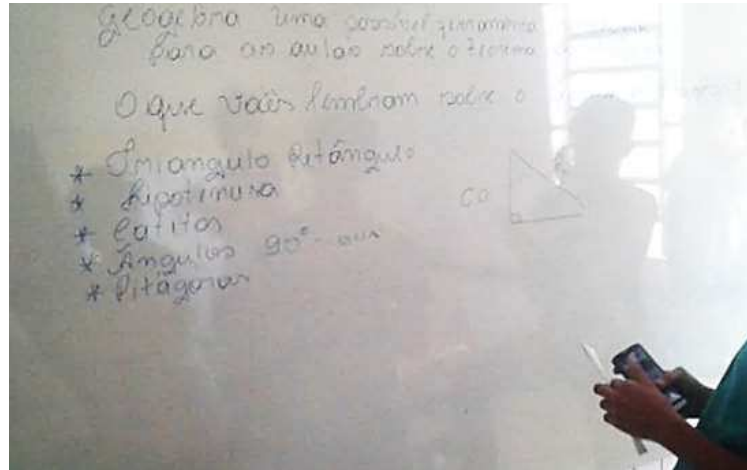 Geogebra uma possível ferramenta
para as aulas sobre o teorema
O que vocês lembram sobre o
* Triangulo Retângulo
* hipotenusa
* Catetos
CO
* Ângulos 90°
* Pitágoras